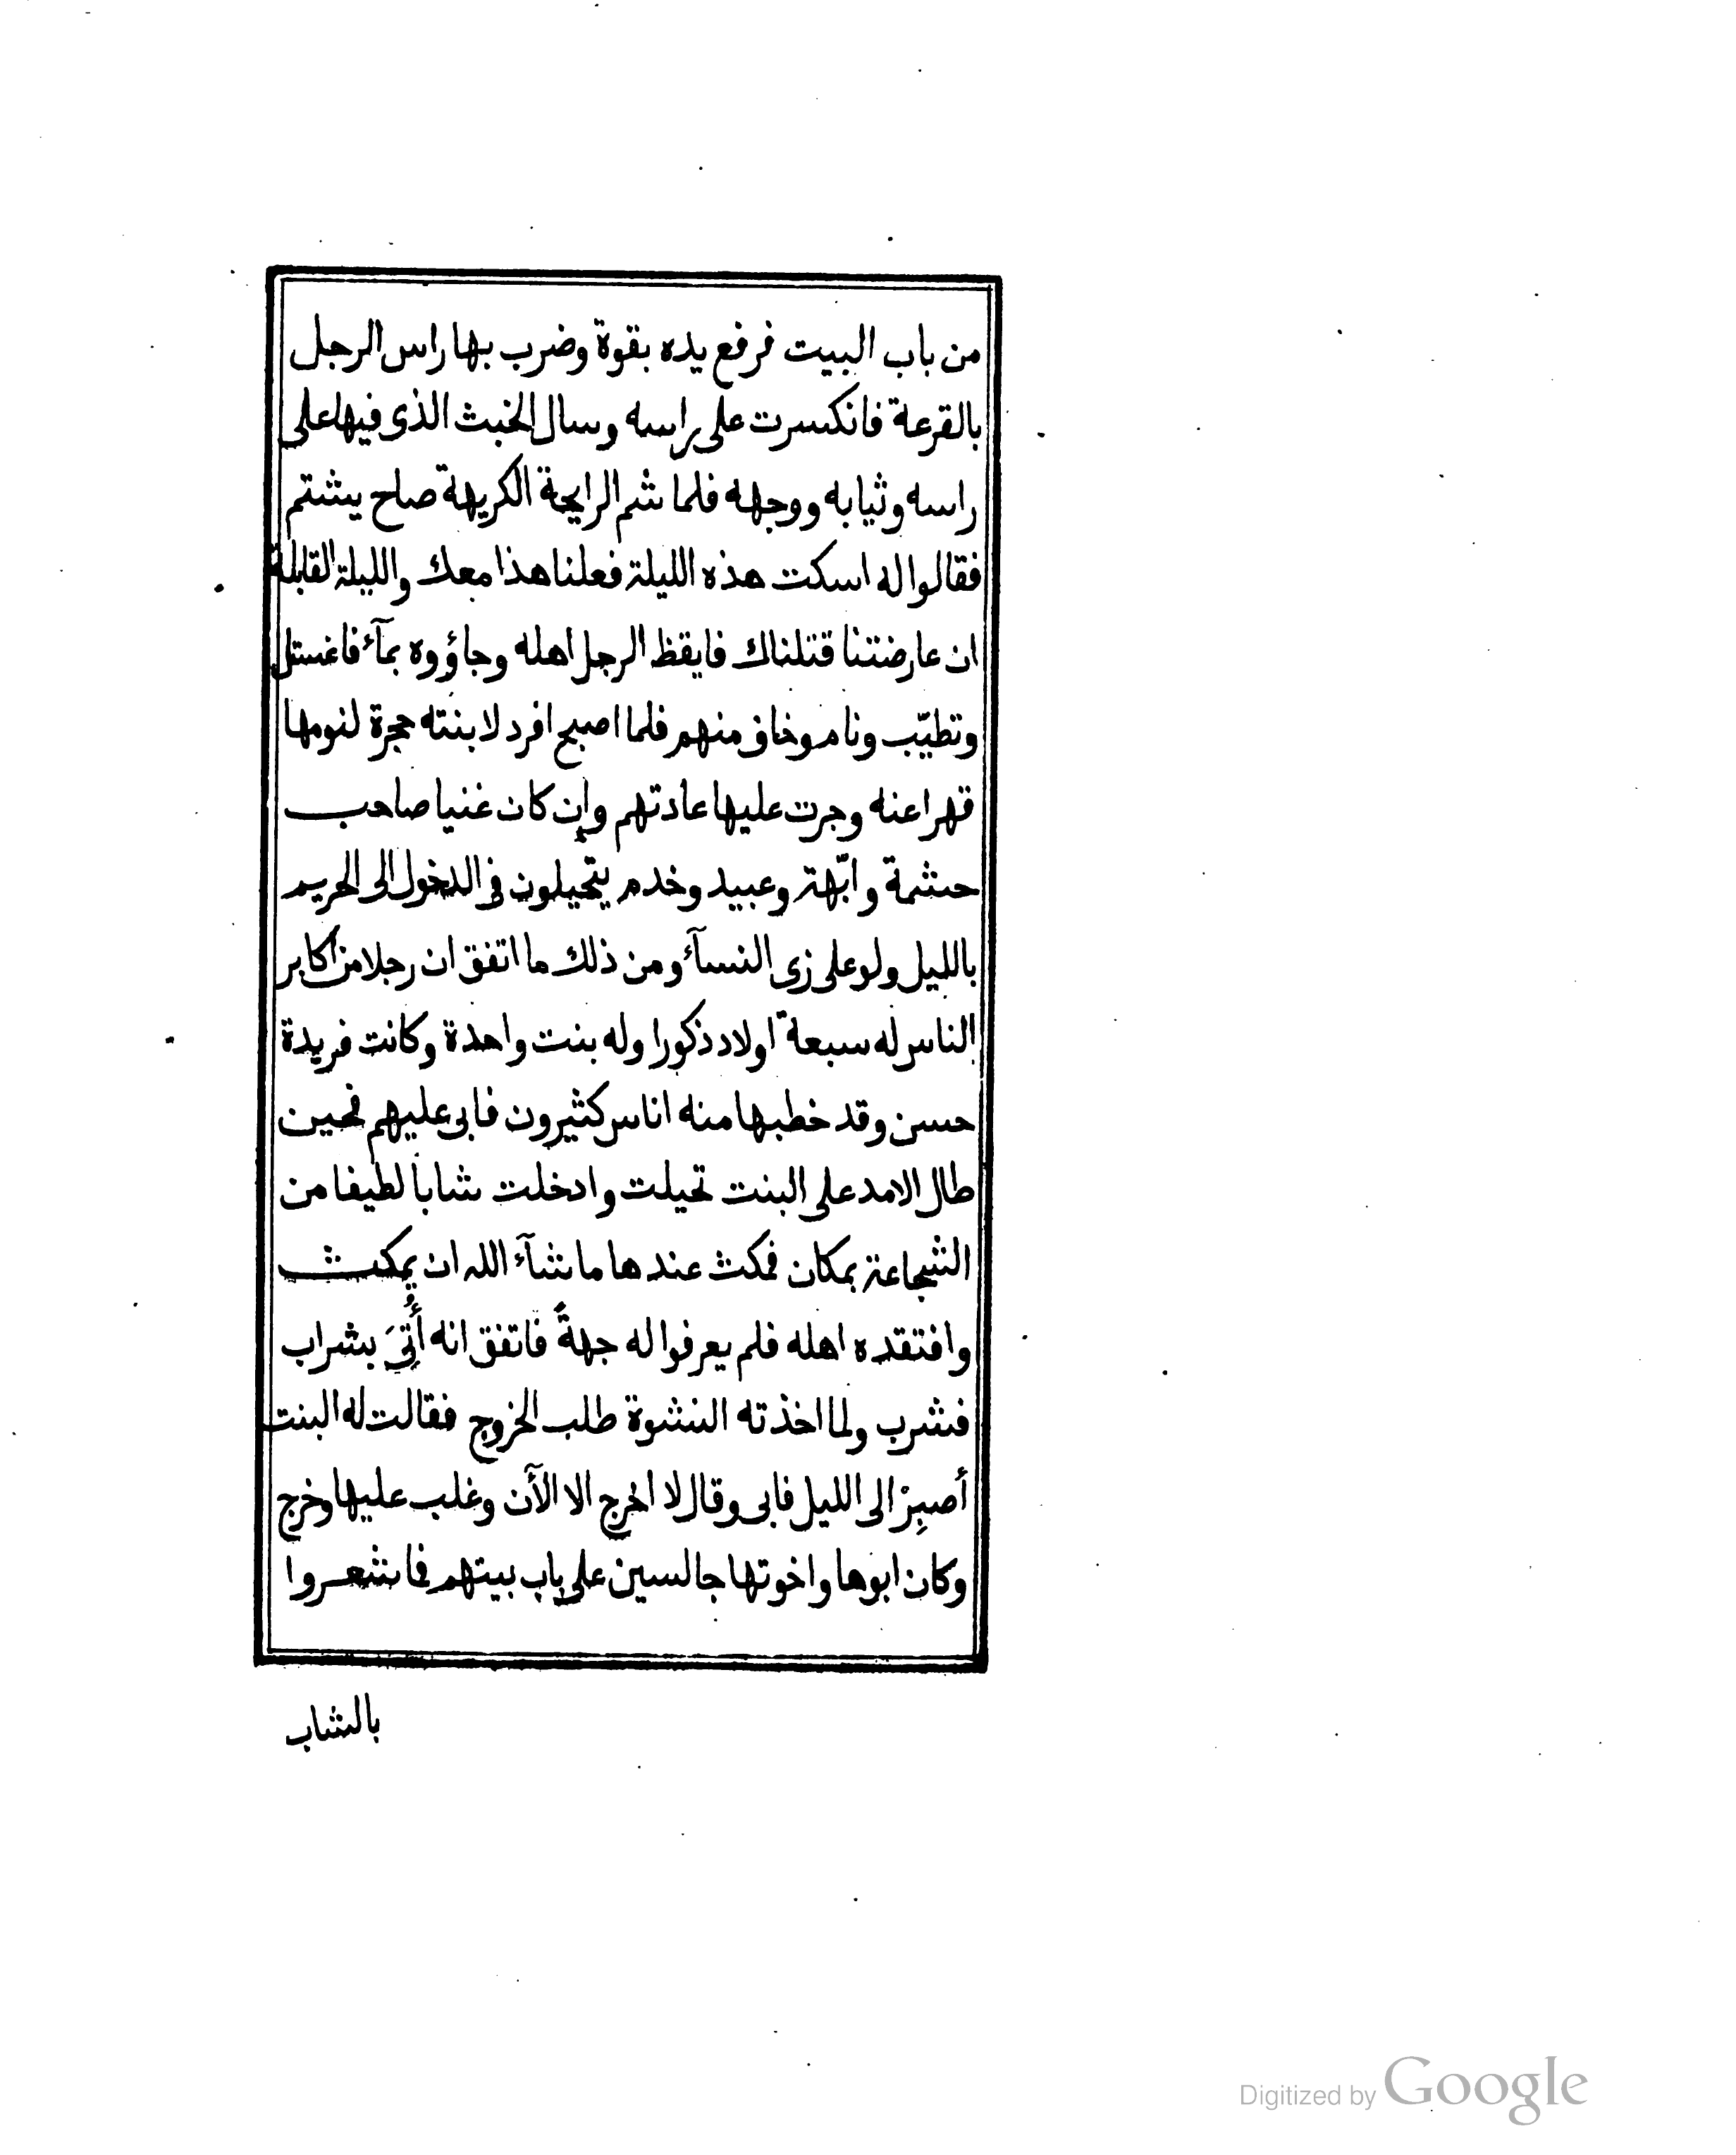 من باب البيت فرفع يده بقوة وضرب بها راس الرجل
بالقرعة فانكسرت على راسه وسال الخبث الذى فيها على
راسه وثيابه ووجهه فلما شم الرايحة الكريهة صاح يشتم
فقالوا له اسكت هذه الليلة فعلنا هذا معك والليلة القابلة
ان عارضتنا قتلناك فايقظ الرجل اهله وجاؤوه بمآء فاغستل
وتطيّب ونام وخاف منهم فلما اصبح افرد لابنته حجرة لنومها
قهرا عنه وجرت عليها عادتهم وإن كان غنيا صاحب
حشمة وابّهة وعبيد وخدم يتحيلون فى الدخول الى الحريم
بالليل ولو على زى النسآء ومن ذلك ما اتفق ان رجلا من اكابر
الناس له سبعة اولاد ذكورا وله بنت واحدة وكانت فريدة
حسن وقد خطبها منه اناس كثيرون فابى عليهم فحين
طال الامد على البنت تحيلت وادخلت شاباً لطيفا من
الشجاعة بمكان فمكث عندها ما شآء الله ان يمكث
وافتقده اهله فلم يعرفوا له جهةً فاتفق انه أُتِىَ بشراب
فشرب ولما اخذته النشوة طلب الخروج فقالت له البنت
أصبِرْ الى الليل فابى وقال لا اخرج الا الآن وغلب عليها وخرج
وكان ابوها واخوتها جالسين على باب بيتهم فما شعروا
بالشاب
Digitized by Google